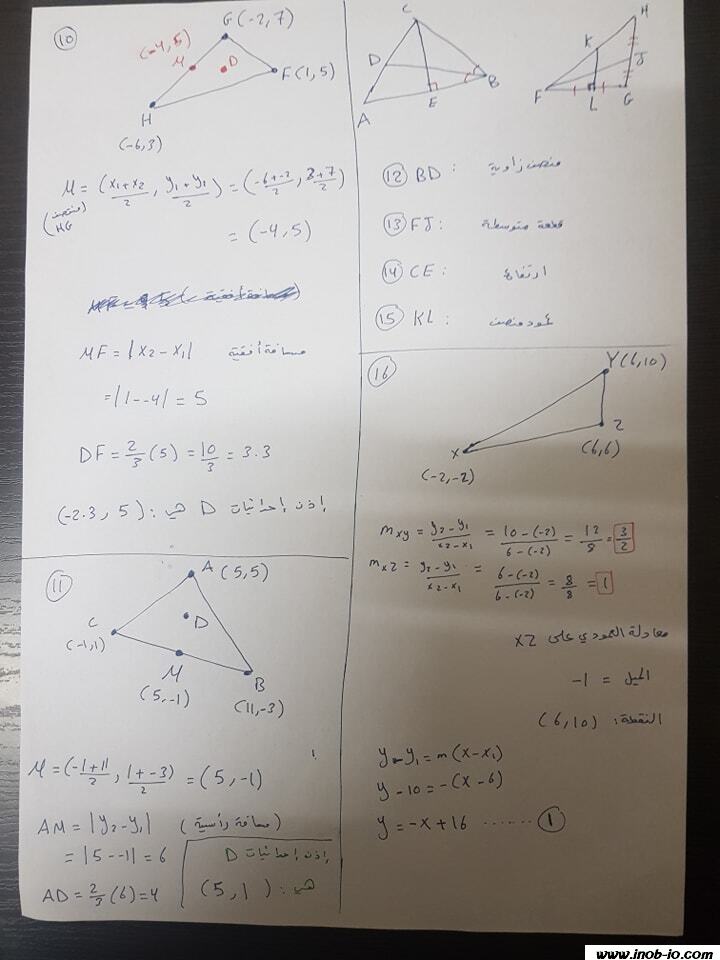 10
G(-2,7)
(-4,5)
M
D
F(1,5)
H
(-6,3)
M = (x₁+x₂/2 , y₁+y₂/2) = (-6+-2/2 , 3+7/2)
(منتصف HG)
= (-4,5)
MF = |x₂-x₁| مسافة أفقية
= |1--4| = 5
DF = 2/3 (5) = 10/3 = 3.3
إذن إحداثيات D هي: (-2.3, 5)
11
A (5,5)
C
(-1,1)
D
M
(5,-1)
B
(11,-3)
M = (-1+11/2 , 1+-3/2) = (5,-1)
AM = |y₂-y₁| (مسافة رأسية)
= |5--1| = 6
AD = 2/3 (6) = 4
إذن إحداثيات D
هي: (5,1)
C
D
B
A
E
H
K
J
F
L
G
12 BD : منصف زاوية
13 FJ : قطعة متوسطة
14 CE : ارتفاع
15 KL : عمود منصف
16
Y(6,10)
X
(-2,-2)
Z
(6,6)
mxy = y₂-y₁/x₂-x₁ = 10-(-2)/6-(-2) = 12/8 = 3/2
mxz = y₂-y₁/x₂-x₁ = 6-(-2)/6-(-2) = 8/8 = 1
معادلة العمودي على XZ
الميل = -1
النقطة: (6,10)
y-y₁ = m(x-x₁)
y-10 = -(x-6)
y = -x+16 ...... 1
www.inob-io.com